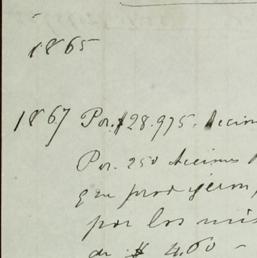 1865
1867 Por $28.975. decim
Por 250 decimos
que produjeron,
por los mis
de $ 4.60 -